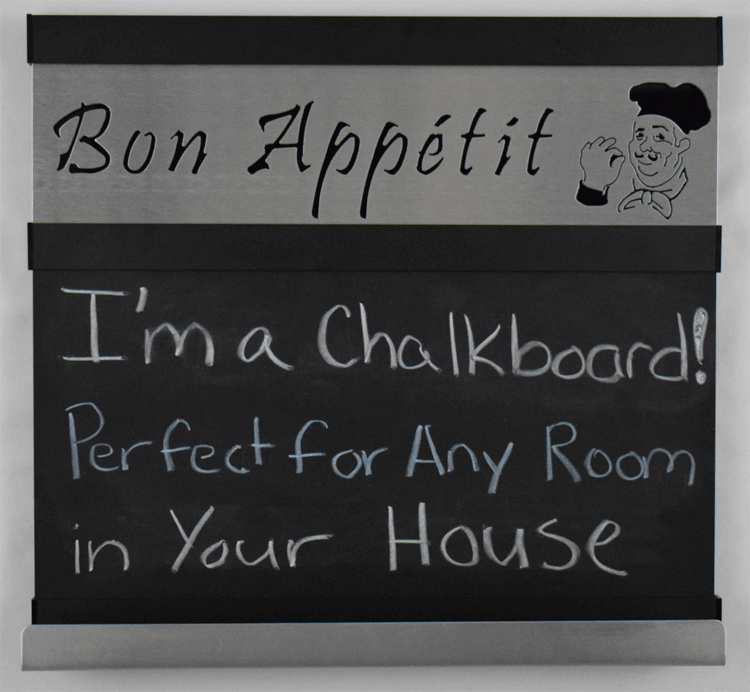 Bon Appétit
I'm a Chalkboard!
Perfect for Any Room
in Your House